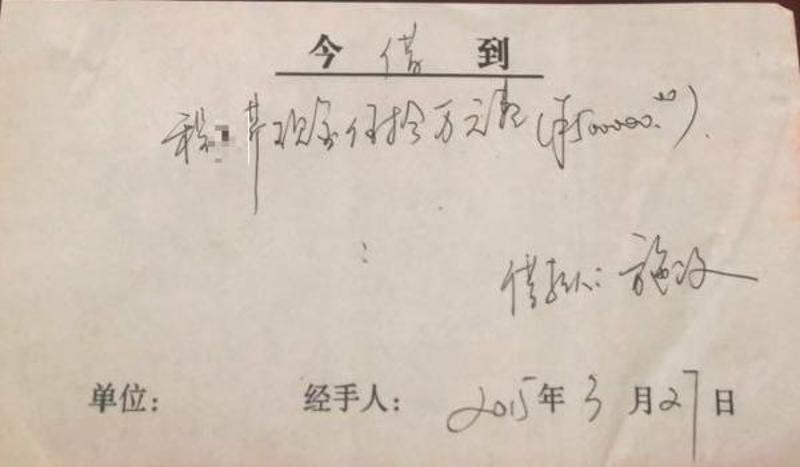 今借到
程 现金伍拾万元整(¥500000.00).
借款人:施
单位: 经手人: 2015年3月27日